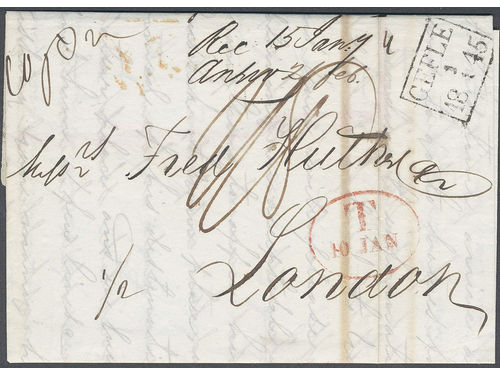 Rec 15 Jany
Answ 2 feb.
GEFLE
1
18 1 45
Messrs Fred Huth & Co
T
10 JAN
London
1/2